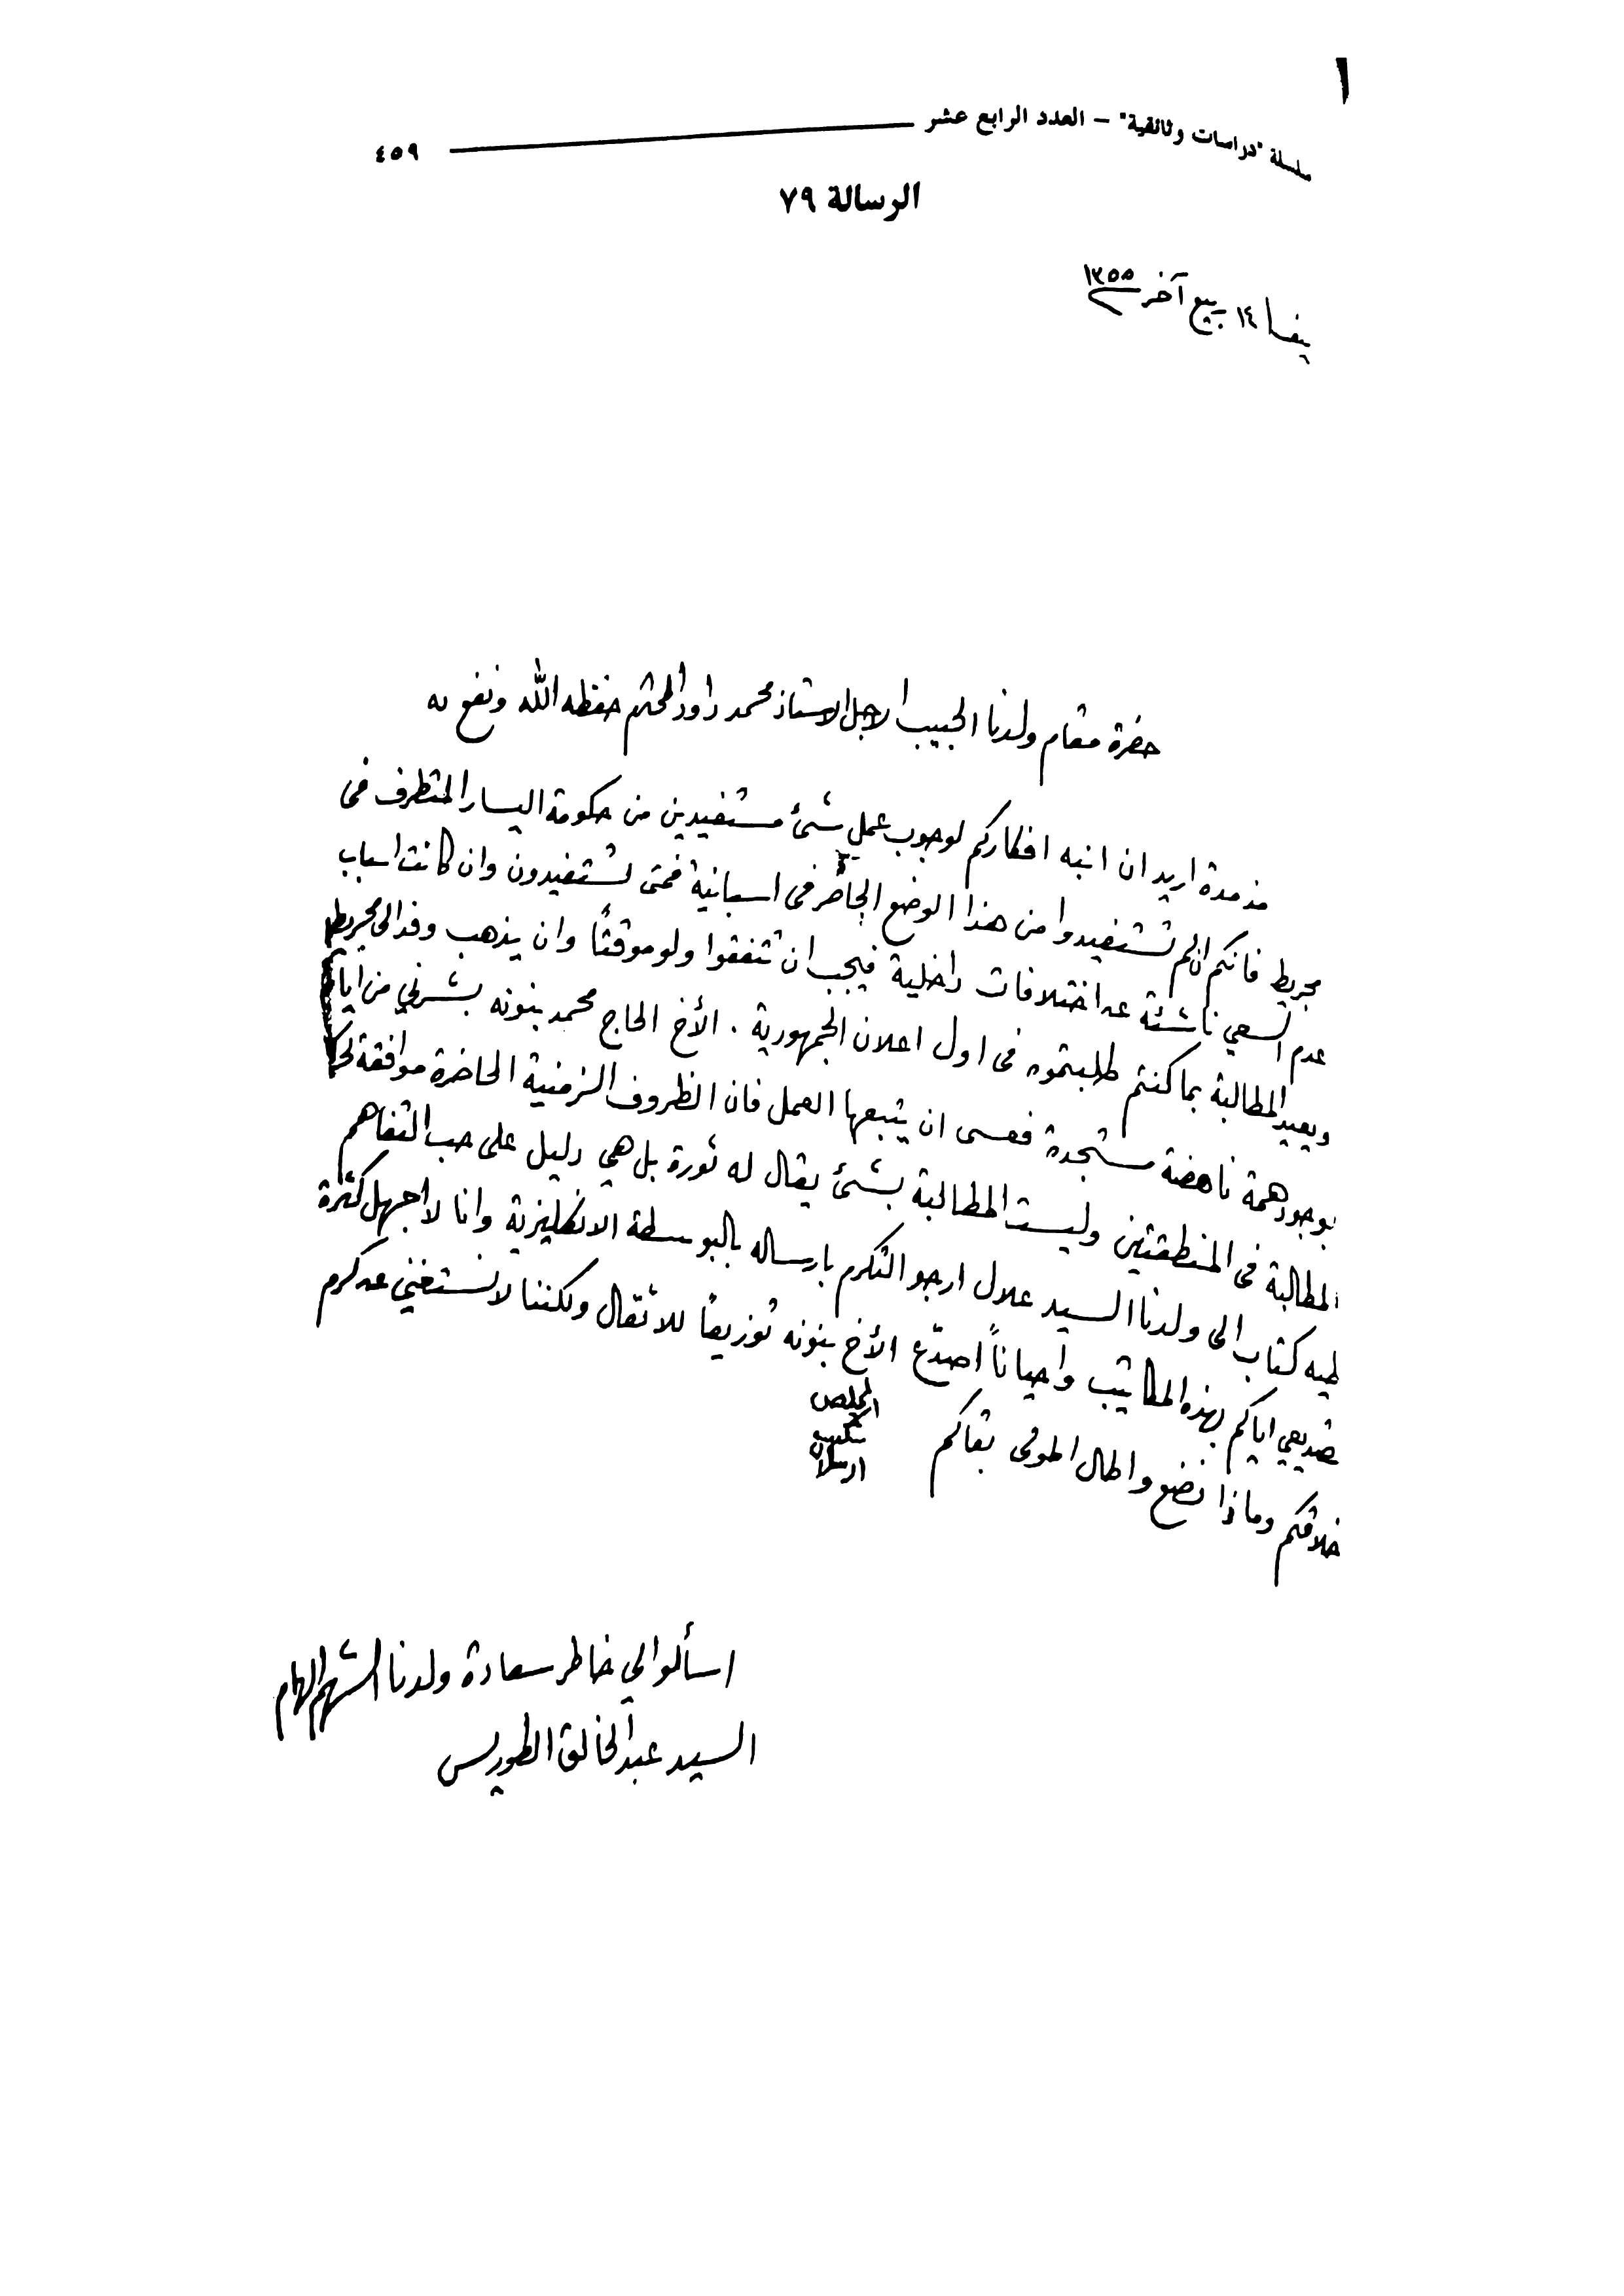 ١
سلسلة "دراسات وثائقية" – العدد الرابع عشر ٤٥٩
الرسالة ٧٩
١٤ ربيع آخر ١٣٥٥
حضرة مقام ولدنا الحبيب الاجل الاستاذ محمد داود المحترم حفظه الله ونفع به
مذ مدة اريد ان انبه افكاركم لوجوب عمل شئ مستفيدين من حكومة اليسار المتطرف فى
مجريط فانكم ان لم تستفيدوا من هذا الوضع الحاضر فى اسبانية فمتى تستفيدون وان كانت اسباب
عدم السعي ناشئة عن اختلافات داخلية فيجب ان تتفقوا ولو موقتاً وان يذهب وفد الى مجريط
ويعيد المطالبة بما كنتم طلبتموه فى اول اعلان الجمهورية . الأخ الحاج محمد بنونه بشرني من ايام
بوجود همة ناهضة مستجدة فعسى ان يتبعها العمل فان الظروف الزمنية الحاضرة موافقة
المطالبة فى المنطقتين وليست المطالبة بشئ يقال له ثورة بل هي دليل على حب التفاهم
طيه كتاب الى ولدنا السيد علال ارجو التكرم بارساله بالبوسطة الانكليزية وانا لا اجهل كثرة
تصديعي اياكم بهذه المكاتيب واحياناً اصدّع الأخ بنونه توزيعاً للاثقال ولكننا لا نستغني عن كرم
خلاقكم وماذا نصنع واطال المولى بقاكم
المخلص
شكيب
ارسلان
اسألوا لي خاطر سعادة ولدنا الشهم الهمام
السيد عبد الخالق الطوريس